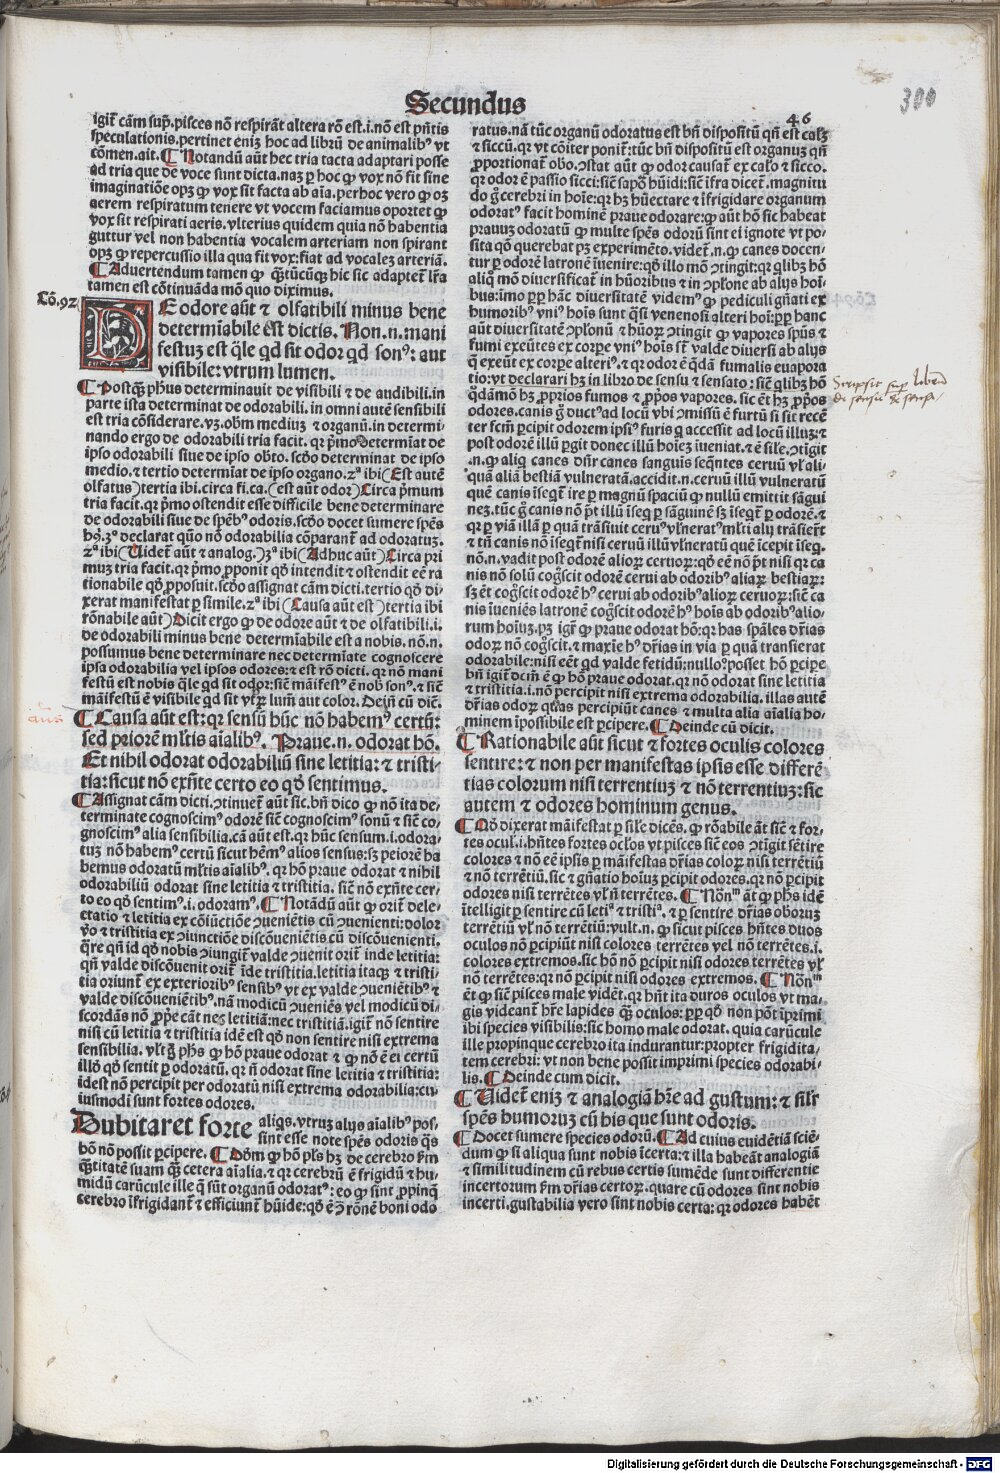 Secundus
46
300
igit̃ cãm sup̃. pisces nõ respirãt altera rõ est. i. nõ est p̃ñtis
speculationis. pertinet eniꝫ hoc ad librũ de animalibꝰ vt
cõmen. ait. ¶ Notandũ aũt hec tria tacta adaptari posse
ad tria que de voce sunt dicta. naꝫ ꝑ hoc ꝙ vox nõ fit sine
imaginatiõe opꝫ ꝙ vox sit facta ab aĩa. per hoc vero ꝙ oꝫ
aerem respiratum tenere vt vocem faciamus oportet ꝙ
vox sit respirati aeris. vlterius quidem quia nõ habentia
guttur vel non habentia vocalem arteriam non spirant
opꝫ ꝙ repercussio illa qua fit vox: fiat ad vocaleꝫ arteriã.
¶ Aduertendum tamen ꝙ q̃ꝫtũcũqꝫ hic sic adaptet̃ l̃ra
tamen est cõtinuãda mõ quo diximus.
Cõ. 92
DE odore aũt ⁊ olfatibili minus bene
determĩabile est dictis. Non. n. mani
festuꝫ est q̃le qd sit odor qd sonꝰ: aut
visibile: vtrum lumen.
¶ Postq̃ꝫ ph̃us determinauit de visibili ⁊ de audibili. in
parte ista determinat de odorabili. in omni autẽ sensibili
est tria cõsiderare. vꝫ. obm mediuꝫ ⁊ organũ. in determi-
nando ergo de odorabili tria facit. qꝛ p̃mo determĩat de
ipso odorabili siue de ipso obto. scd̃o determinat de ipso
medio. ⁊ tertio determĩat de ipso organo. 2ª ibi (Est autẽ
olfatus) tertia ibi. circa fi. ca. (est aũt odor) Circa p̃mum
tria facit. qꝛ p̃mo ostendit esse difficile bene determinare
de odorabili siue de sp̃ebꝰ odoris. scd̃o docet sumere sp̃es
hꝰ. 3º declarat quõ nõ odorabilia cõparant̃ ad odoratuꝫ.
2ª ibi (Uidet̃ aũt ⁊ analog.) 3ª ibi (Adhuc aũt) Circa pri
muꝫ tria facit. qꝛ p̃mo ꝓponit qd̃ intendit ⁊ ostendit eẽ ra
tionabile qd̃ ꝓposuit. scd̃o assignat cãm dicti. tertio qd̃ di-
xerat manifestat ꝑ simile. 2ª ibi (Causa aũt est) tertia ibi
rõnabile aũt) Dicit ergo ꝙ de odore aũt ⁊ de olfatibili. i.
de odorabili minus bene determĩabile est a nobis. nõ. n.
possumus bene determinare nec determĩate cognoscere
ipsa odorabilia vel ipsos odores: ⁊ est rõ dicti. qꝛ nõ mani
festũ est nobis q̃le qd sit odor: sic̃ mãifestꝰ ẽ nob̃ sonꝰ. ⁊ sic̃
mãifestũ ẽ visibile qd sit vtꝝ lum̃ aut color. Dein̄ cũ dic̃.
¶ Causa aũt est: qꝛ sensũ hũc nõ habemꝰ certũ:
sed priorẽ ml̃tis aĩalibꝰ. Praue. n. odorat hõ.
Et nihil odorat odorabiliũ sine letitia: ⁊ tristi-
tia: sicut nõ exñte certo eo qd̃ sentimus.
¶ Assignat cãm dicti. ꝯtinuet̃ aũt sic. bñ dico ꝙ nõ ita de-
terminate cognoscimꝰ odorẽ sic̃ cognoscimꝰ sonũ ⁊ sic̃ co-
gnoscimꝰ alia sensibilia. cã aũt est. qꝛ hũc sensum. i. odora-
tuꝫ nõ habemꝰ certũ sicut hẽmꝰ alios sensus: sꝫ peiorẽ ha
bemus odoratũ ml̃tis aĩalibꝰ. qꝛ hõ praue odorat ⁊ nihil
odorabiliũ odorat sine letitia ⁊ tristitia. sic̃ nõ exñte cer-
to eo qd̃ sentimꝰ. i. odoramꝰ. ¶ Notãdũ aũt ꝙ orit̃ dele-
ctatio ⁊ letitia ex cõiũctiõe ꝯueniẽtis cũ ꝯuenienti: dolor
v̊o ⁊ tristitia ex ꝯiunctiõe discõueniẽtis cũ discõuenienti.
q̃re qñ id qd̃ nobis ꝯiungit̃ valde ꝯuenit orit̃ inde letitia:
qñ valde discõuenit orit̃ ĩde tristitia. letitia itaqꝫ ⁊ tristi-
tia oriunt̃ ex exterioribꝰ sensibꝰ vt ex valde ꝯueniẽtibꝰ ⁊
valde discõueniẽtibꝰ. nã modicũ ꝯueniẽs vel modicũ di-
scordãs nõ ꝓp̃e cãt neqꝫ letitiã: nec tristitiã. igit̃ nõ sentire
nisi cũ letitia ⁊ tristitia idẽ est qd̃ non sentire nisi extrema
sensibilia. vl̃t g̊ ph̃s ꝙ hõ praue odorat ⁊ ꝙ nõ ẽ ei certũ
illd̃ qd̃ sentit ꝑ odoratũ. qꝛ ñ odorat sine letitia ⁊ tristitia:
idest nõ percipit per odoratũ nisi extrema odorabilia: cu-
iusmodi sunt fortes odores.
Dubitaret forte aliqs. vtruꝫ alijs aĩalibꝰ pos-
sint esse note sp̃es odoris q̃s
hõ nõ possit ꝑcipere. ¶ Dõm ꝙ hõ pl̃s hꝫ de cerebro ẜm
q̃ꝫtitatẽ suam q̃ꝫ cetera aĩalia. ⁊ qꝛ cerebrũ ẽ frigidũ ⁊ hu-
midũ carũcule ille q̃ sũt organũ odoratꝰ: eo ꝙ sint ꝓpinq̃
cerebro ĩfrigidant̃ ⁊ efficiunt̃ hũide: qd̃ ẽ ꝯ rõnẽ boni odo
ratus. nã tũc organũ odoratus est bñ dispositũ qñ est calꝫ
⁊ siccũ. qꝛ vt cõiter ponit̃: tũc bñ dispositũ est organuꝫ qñ
ꝓportionat̃ obo. ꝯstat aũt ꝙ odor causat̃ ex calo ⁊ sicco.
qꝛ odor ẽ passio sicci: sic̃ sapoꝝ hũidi: sic̃ ĩfra dicet̃. magnitu
do g̊ cerebri in hoĩe: qꝛ hꝫ hũectare ⁊ ĩfrigidare organum
odoratꝰ facit hominẽ praue odorare: ꝙ aũt hõ sic habeat
prauuꝫ odoratũ ꝙ multe sp̃es odorũ sint ei ignote vt po-
sita qõ querebat pꝫ experimẽto. videt̃. n. ꝙ canes docen-
tur ꝑ odorẽ latronẽ ĩuenire: qd̃ illo mõ ꝯtingit: qꝛ qlibꝫ hõ
aliq̊ mõ diuersificat̃ in hũoribus ⁊ in ꝯplõne ab alijs hoĩ-
bus: ĩmo ꝑp hãc diuersitatẽ videmꝰ ꝙ pediculi gñati ex
humoribꝰ vniꝰ hoĩs sunt q̃si venenosi alteri hoĩ: ꝑp hanc
aũt diuersitatẽ ꝯplonũ ⁊ hũoꝝ ꝯtingit ꝙ vapores spũs ⁊
fumi exeũtes ex corpe vniꝰ hoĩs st̃ valde diuersi ab alijs
q̃ exeũt ex corpe alteriꝰ. ⁊ qꝛ odor ẽ q̃dã fumalis euapora
tio: vt declarari hꝫ in libro de sensu ⁊ sensato: sic̃ qlibꝫ hõ
q̃dãmõ hꝫ ꝓprios fumos ⁊ ꝓp̊os vapores. sic ẽt hꝫ ꝓp̊os
odores. canis g̊ ductꝰ ad locũ vbi ꝯmissũ ẽ furtũ si sit recẽ
ter fcm̃ ꝑcipit odorem ipsiꝰ furis q accessit ad locũ illuꝫ: ⁊
post odorẽ illũ ꝑgit donec illũ hoĩeꝫ ĩueniat. ⁊ ẽ sile. ꝯtigit
.n. ꝙ aliq canes dñr canes sanguis seqñtes ceruũ vl̃ ali-
quã aliã bestiã vulneratã. accidit. n. ceruũ illũ vulneratũ
quẽ canis ĩseqt̃ ire ꝑ magnũ spaciũ ꝙ nullũ emittit sãgui
neꝫ. tũc g̊ canis nõ p̃t illũ ĩseq ꝑ sãguinẽ sꝫ ĩseqt̃ ꝑ odorẽ. ⁊
qꝛ ꝑ viã illã ꝑ quã trãsiuit ceruꝰ vl̃neratꝰ ml̃ti alij trãsiert̃
⁊ tñ canis nõ ĩseqt̃ nisi ceruũ illũ vl̃neratũ quẽ ĩcepit ĩseq.
nõ. n. vadit post odorẽ alioꝝ ceruoꝝ: qd̃ eẽ nõ p̃t nisi qꝛ ca
nis nõ solũ cog̃scit odorẽ cerui ab odoribꝰ aliaꝝ bestiaꝝ:
sꝫ ẽt cog̃scit odorẽ hꝰ cerui ab odoribꝰ alioꝝ ceruoꝝ: sic̃ ca
nis ĩueniẽs latronẽ cog̃scit odorẽ hꝰ hoĩs ab odoribꝰ alio-
rum hoĩuꝫ. pꝫ igit̃ ꝙ praue odorat hõ: qꝛ has sp̃ales dr̃ias
odoꝝ nõ cog̃scit. ⁊ maxie hꝰ dr̃ias in via ꝑ quã transierat
odorabile: nisi eẽt qd valde fetidũ: nulloº posset hõ ꝑcipe
bñ igit̃ dcm̃ ẽ ꝙ hõ praue odorat. qꝛ nõ odorat sine letitia
⁊ tristitia. i. nõ percipit nisi extrema odorabilia. illas autẽ
dr̃ias odoꝝ q̃s ꝑcipiũt canes ⁊ multa alia aĩalia ho-
minem ĩpossibile est ꝑcipere. ¶ Deinde cũ dicit.
¶ Rationabile aũt sicut ⁊ fortes oculis colores
sentire: ⁊ non per manifestas ipsis esse differẽ
tias colorum nisi terrentiuꝫ ⁊ nõ terrentiuꝫ: sic
autem ⁊ odores hominum genus.
¶ Qd̃ dixerat mãifestat ꝑ sile dicẽs. ꝙ rõabile ãt sic̃ ⁊ for-
tes ocul. i. hñtes fortes oclos vt pisces sic̃ eos ꝯtigit sẽtire
colores ⁊ nõ eẽ ipsis ꝑ mãifestas dr̃ias coloꝝ nisi terrẽtiũ
⁊ nõ terrẽtiũ. sic ⁊ gñatio hoĩuꝫ ꝑcipit odores. qꝛ nõ ꝑcipit
odores nisi terrẽtes vl̃ ñ terrẽtes. ¶ Nõnᵐ ãt ꝙ ph̃s idẽ
ĩtelligit ꝑ sentire cũ letiª ⁊ tristiª. ⁊ ꝑ sentire dr̃ias oboruꝫ
terrẽtiũ vl̃ nõ terrẽtiũ: vult. n. ꝙ sicut pisces hñtes duos
oculos nõ ꝑcipiũt nisi colores terrẽtes vel nõ terrẽtes. i.
colores extremos. sic hõ nõ ꝑcipit nisi odores terrẽtes vl̃
nõ terrẽtes: qꝛ nõ ꝑcipit nisi odores extremos. ¶ Nõnᵐ
ẽt ꝙ sic̃ pisces male vidẽt. qꝛ hñt ita duros oculos vt ma-
gis videant̃ hr̃e lapides q̃ꝫ oculos: ꝑp qd̃ non põt ĩprimi
ibi species visibilis: sic homo male odorat. quia carũcule
ille propinque cerebro ita indurantur: propter frigidita-
tem cerebri: vt non bene possit imprimi species odorabi-
lis. ¶ Deinde cum dicit.
¶ Uidet̃ eniꝫ ⁊ analogiã hr̃e ad gustum: ⁊ silr̃
sp̃es humoruꝫ cũ his que sunt odoris.
¶ Docet sumere species odorũ. ¶ Ad cuius euidẽtiã sciẽ-
dum ꝙ si aliqua sunt nobis ĩcerta: ⁊ illa habeãt analogiã
⁊ similitudinem cũ rebus certis sumẽde sunt differentie
incertorum ẜm dr̃ias certoꝝ. quare cũ odores sint nobis
incerti. gustabilia vero sint nobis certa: qꝛ odores habẽt
Scripsit super librũ
de sensu & sensa.
Digitalisierung gefördert durch die Deutsche Forschungsgemeinschaft - DFG